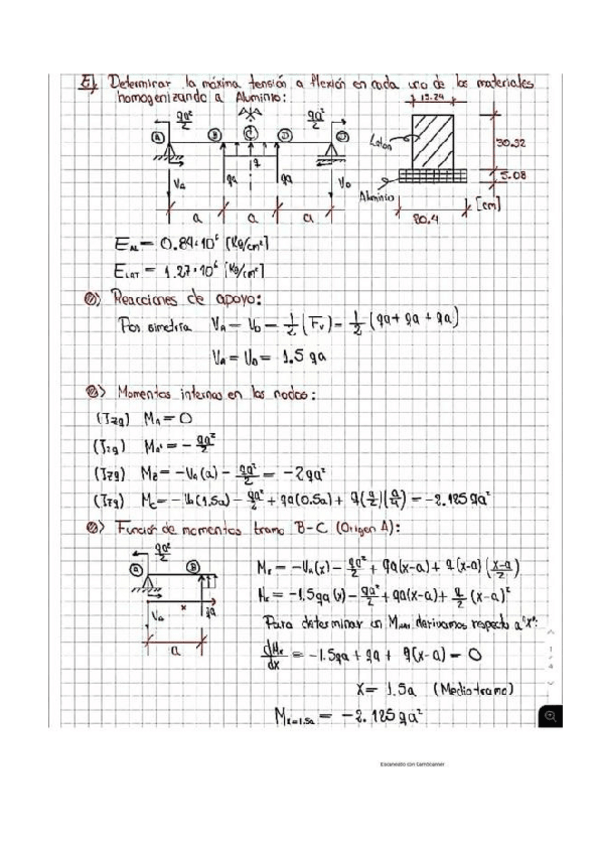 E) Determinar la máxima tensión a flexión en cada uno de los materiales
homogenizando a Aluminio:
15.24
qa²/2 qa²/2
A B C D
q
Laton
30.32
5.08
Aluminio
[cm]
VA qa qa VD
a a a
E_AL = 0.84·10⁶ [Kg/cm²]
E_LAT = 1.27·10⁶ [Kg/cm²]
Reacciones de apoyo:
Por simetria VA = VD = 1/2 (Fv) = 1/2 (qa + qa + qa)
VA = VD = 1.5 qa
Momentos internos en los nodos:
(Izq) MA = 0
MA' = - qa²/2
(Izq) MB = -VA(a) - qa²/2 = -2qa²
(Izq) MC = -VA(1.5a) - qa²/2 + qa(0.5a) + q(a/2)(a/4) = -2.125qa²
Función de momentos tramo B-C (Origen A):
qa²/2
A B
VA x qa
a
Mx = -VA(x) - qa²/2 + qa(x-a) + q(x-a)(x-a/2)
Mx = -1.5qa(x) - qa²/2 + qa(x-a) + q/2 (x-a)²
Para determinar un Mmax derivamos respecto a "x":
dMx/dx = -1.5qa + qa + q(x-a) = 0
x = 1.5a (Medio tramo)
Mx=1.5a = -2.125 qa²
Escaneado con CamScanner